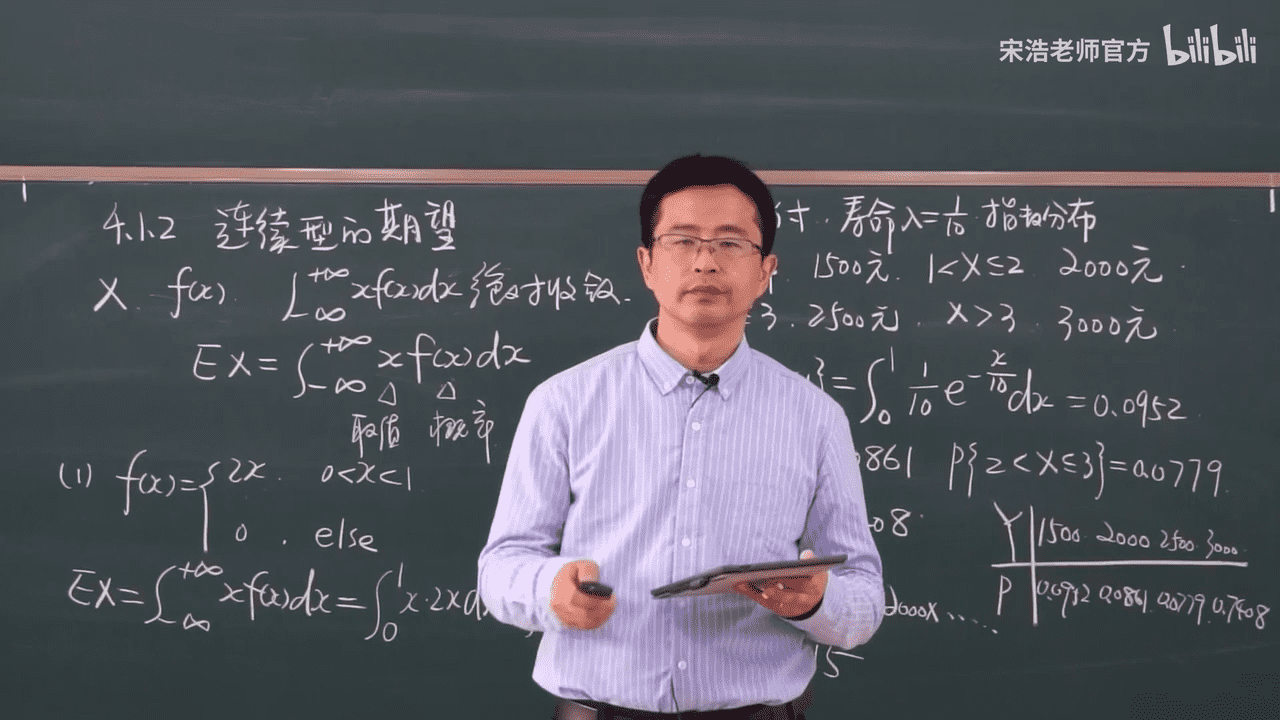 宋浩老师官方 bilibili
4.1.2 连续型的期望
X f(x) ∫_{-∞}^{+∞} xf(x)dx 绝对收敛.
EX = ∫_{-∞}^{+∞} x f(x)dx
取值 概率
(1) f(x)= { 2x. 0<x<1
0 . else
EX=∫_{-∞}^{+∞} xf(x)dx=∫_0^1 x·2xd
寿命λ=1/10 指数分布
1500元. 1<X≤2 2000元.
3. 2500元. X>3. 3000元.
}=∫_0^1 1/10 e^{-x/10}dx=0.0952
0861 P{2<X≤3}=0.0779.
08.
Y 1500. 2000 2500. 3000.
P 0.0952 0.0861. 0.0779. 0.7408
2000X.....
15